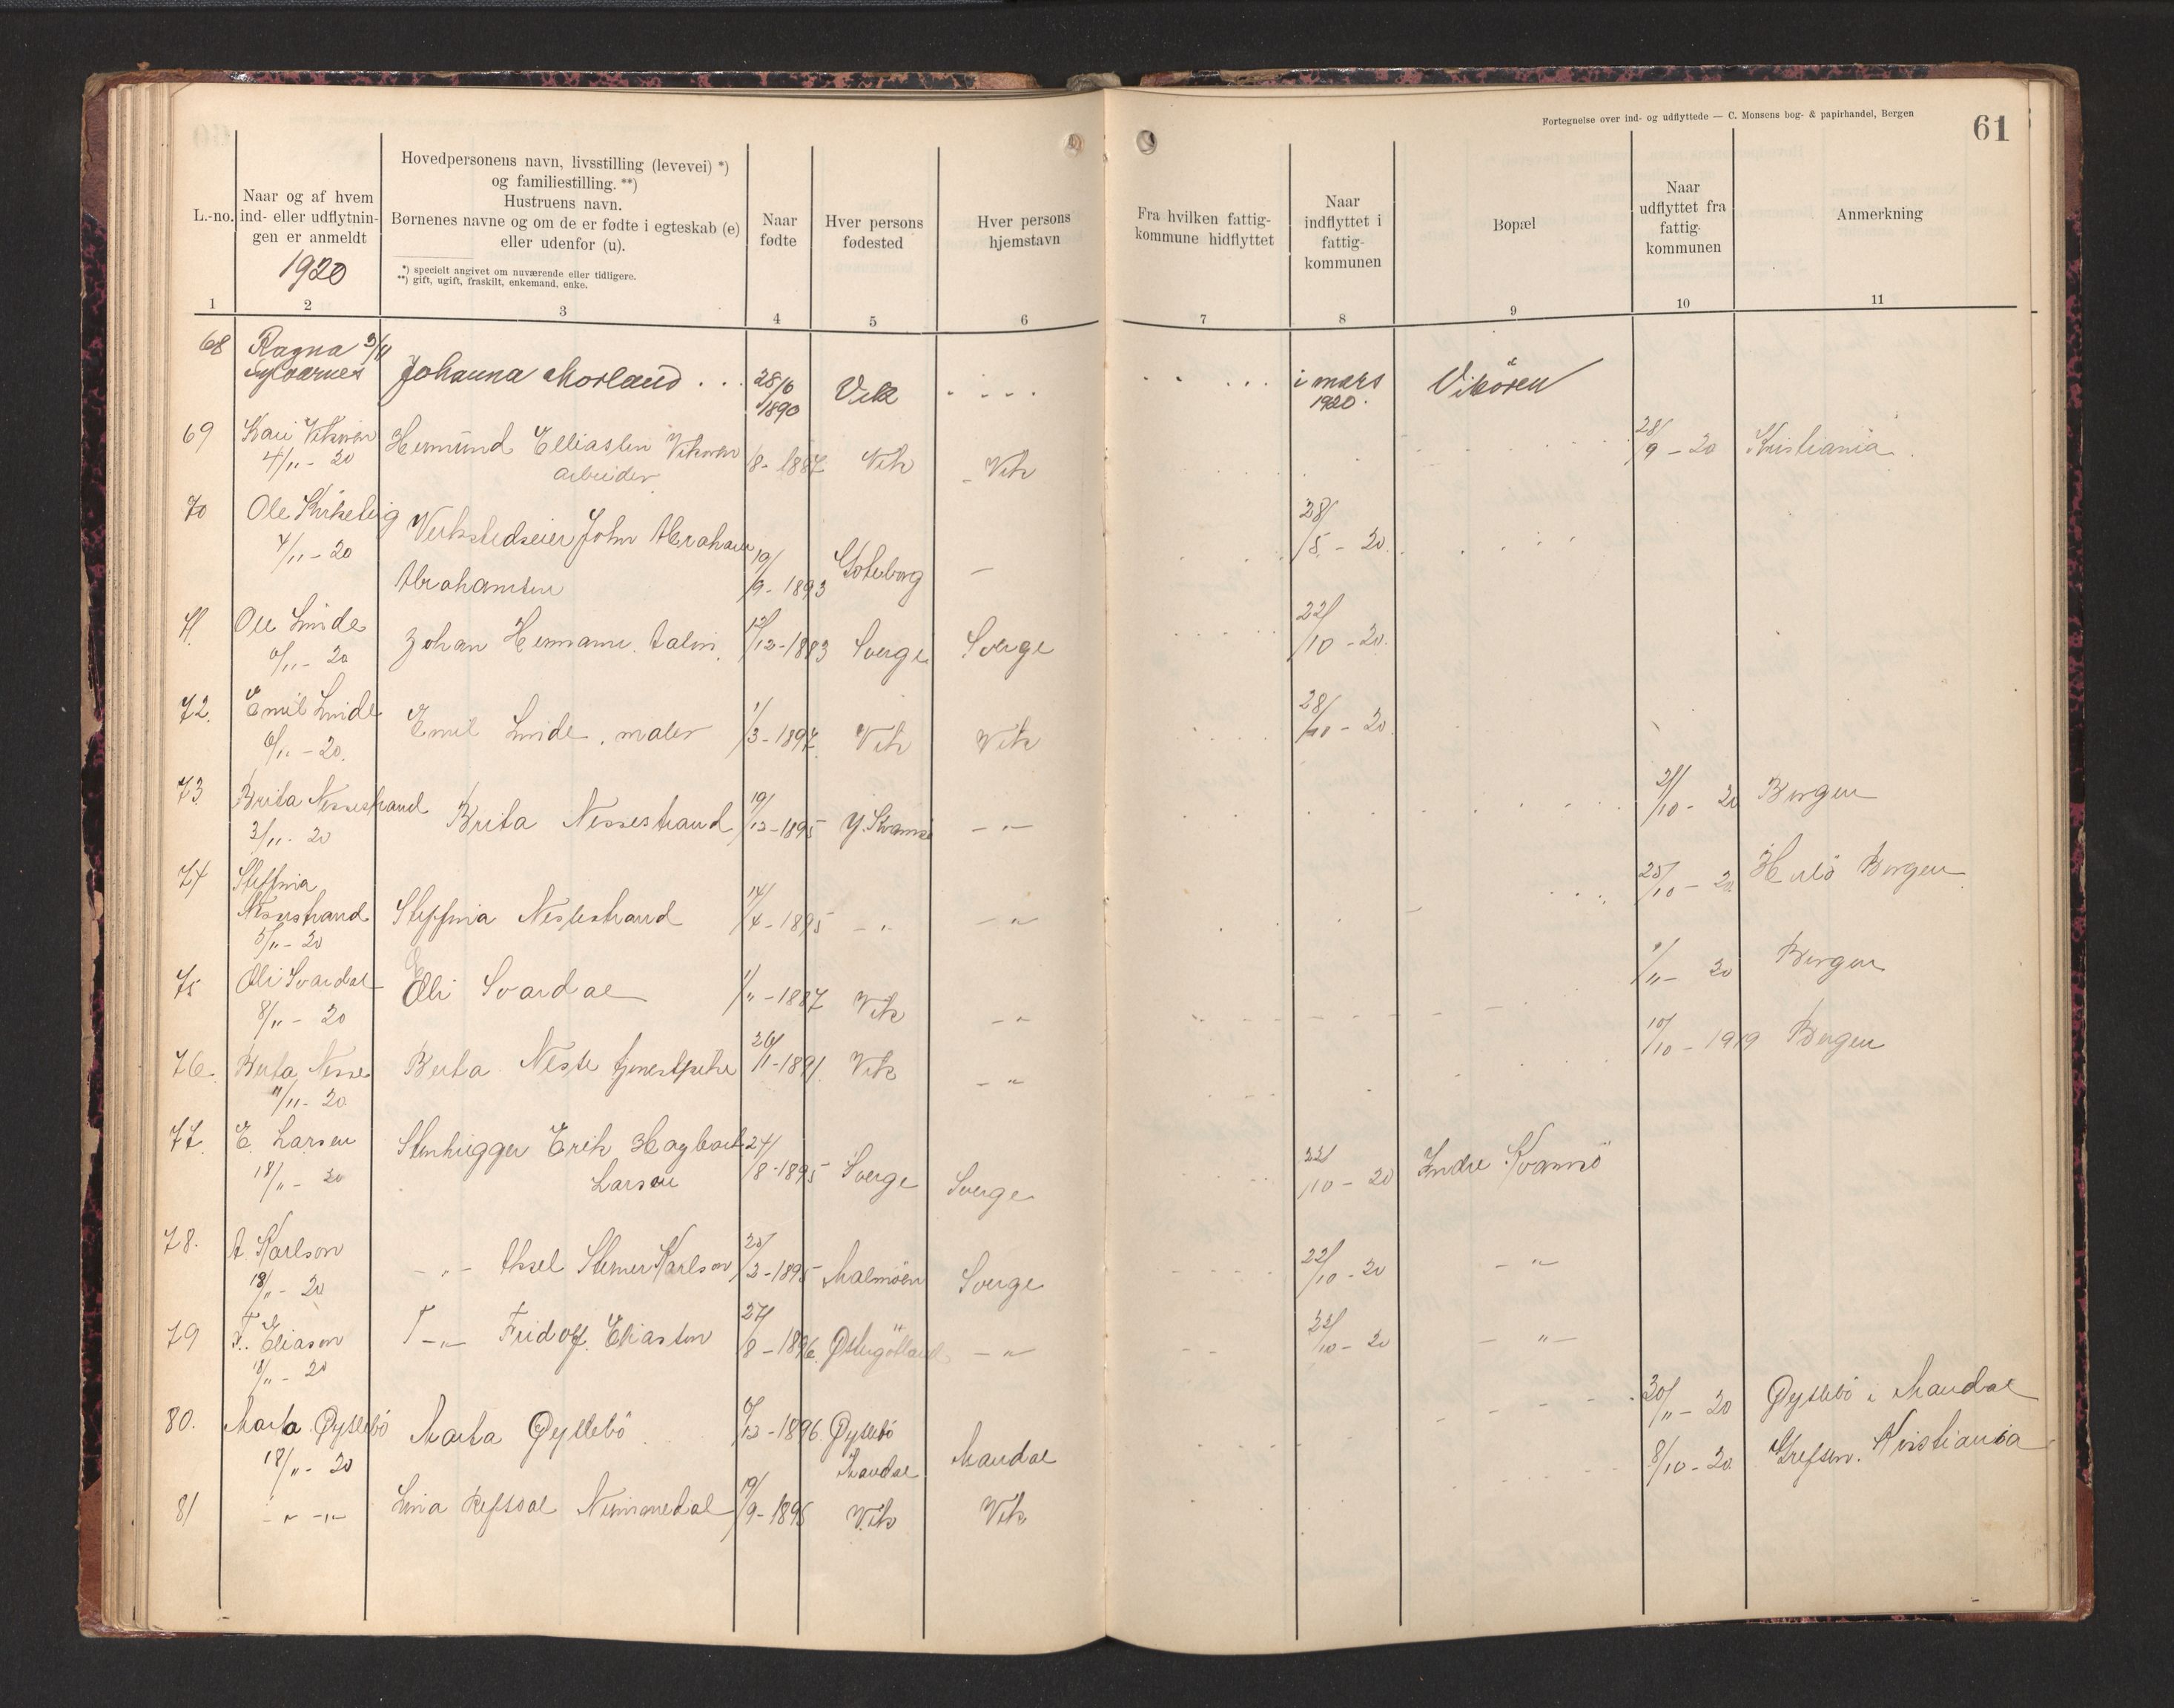 Fortegnelse over ind- og udflyttede — C. Monsens bog- & papirhandel, Bergen
61
L.-no.
Naar og af hvem
ind- eller udflytnin-
gen er anmeldt
1920
Hovedpersonens navn, livsstilling (levevei) *)
og familiestilling. **)
Hustruens navn.
Børnenes navne og om de er fødte i egteskab (e)
eller udenfor (u).
*) specielt angivet om nuværende eller tidligere.
**) gift, ugift, fraskilt, enkemand, enke.
Naar
fødte
Hver persons
fødested
Hver persons
hjemstavn
Fra hvilken fattig-
kommune hidflyttet
Naar
indflyttet i
fattig-
kommunen
Bopæl
Naar
udflyttet fra
fattig-
kommunen
Anmerkning
1 2 3 4 5 6 7 8 9 10 11
68 Ragna 3/11
Johanna Morland . . . 28/6 1890 Vik . . . . i mars 1920. Vikören
69 Kari Vikören 4/11 - 20 Hermund Elliasen Vikören arbeider /8 - 1887 Vik Vik 28/9 - 20 Kristiania
70 Ole Kirkeby 4/11 - 20 Verkstedseier John Abraham
Abrahamsen 19/9 - 1893 Göteborg — 28/5 - 20.
71. Ole Linde 6/11 - 20 Johan Hermann 12/12 - 1883 Sverge Sverge 22/10 - 20.
72. Emil Linde 6/11 - 20. Emil Linde, maler 1/3 - 1897 Vik Vik 28/10 - 20.
73 Brita Nessestrand 3/11 - 20 Brita Nessestrand 19/12 - 1895 Y. Kvamsö - " - 21/10 - 20 Bergen
74 Steffina
Nessestrand
5/11 - 20 Steffina Nessestrand 14/4 - 1895 - " - " 25/10 - 20 Bergen
75 Oli Svardal 8/11 - 20 Oli Svardal 1/11 - 1887 Vik - " 9/11 - 20 Bergen
76. Berta Nesse 11/11 - 20 Berta Nesse tjenestpike 26/11 - 1891. Vik - " 10/10 - 1919 Bergen
77. E. Larsen 18/11 - 20 Stenhugger Erik Hagbart
Larsen 24/8 - 1895 Sverge Sverge 22/10 - 20 Indre Kvamsö
78. A. Karlson 18/11 - 20 - " - Aksel Steiner Karlson 25/2 - 1895 Malmöen Sverge 22/10 - 20 - " -
79 F. Eliason 18/11 - 20 - " - Fridolf Eliason 27/8 - 1896. Østergötland - " 22/10 - 20 - " -
80. Marta Øyslebö 18/11 - 20 Marta Øyslebö 6/12 - 1896. Øyslebö
Mandal Mandal 30/11 - 20 Øyslebö i Mandal
81 - " - " - Lina Refsdal Nummedal 19/9 - 1895 Vik Vik 8/10 - 20 Grefsen. Kristiania